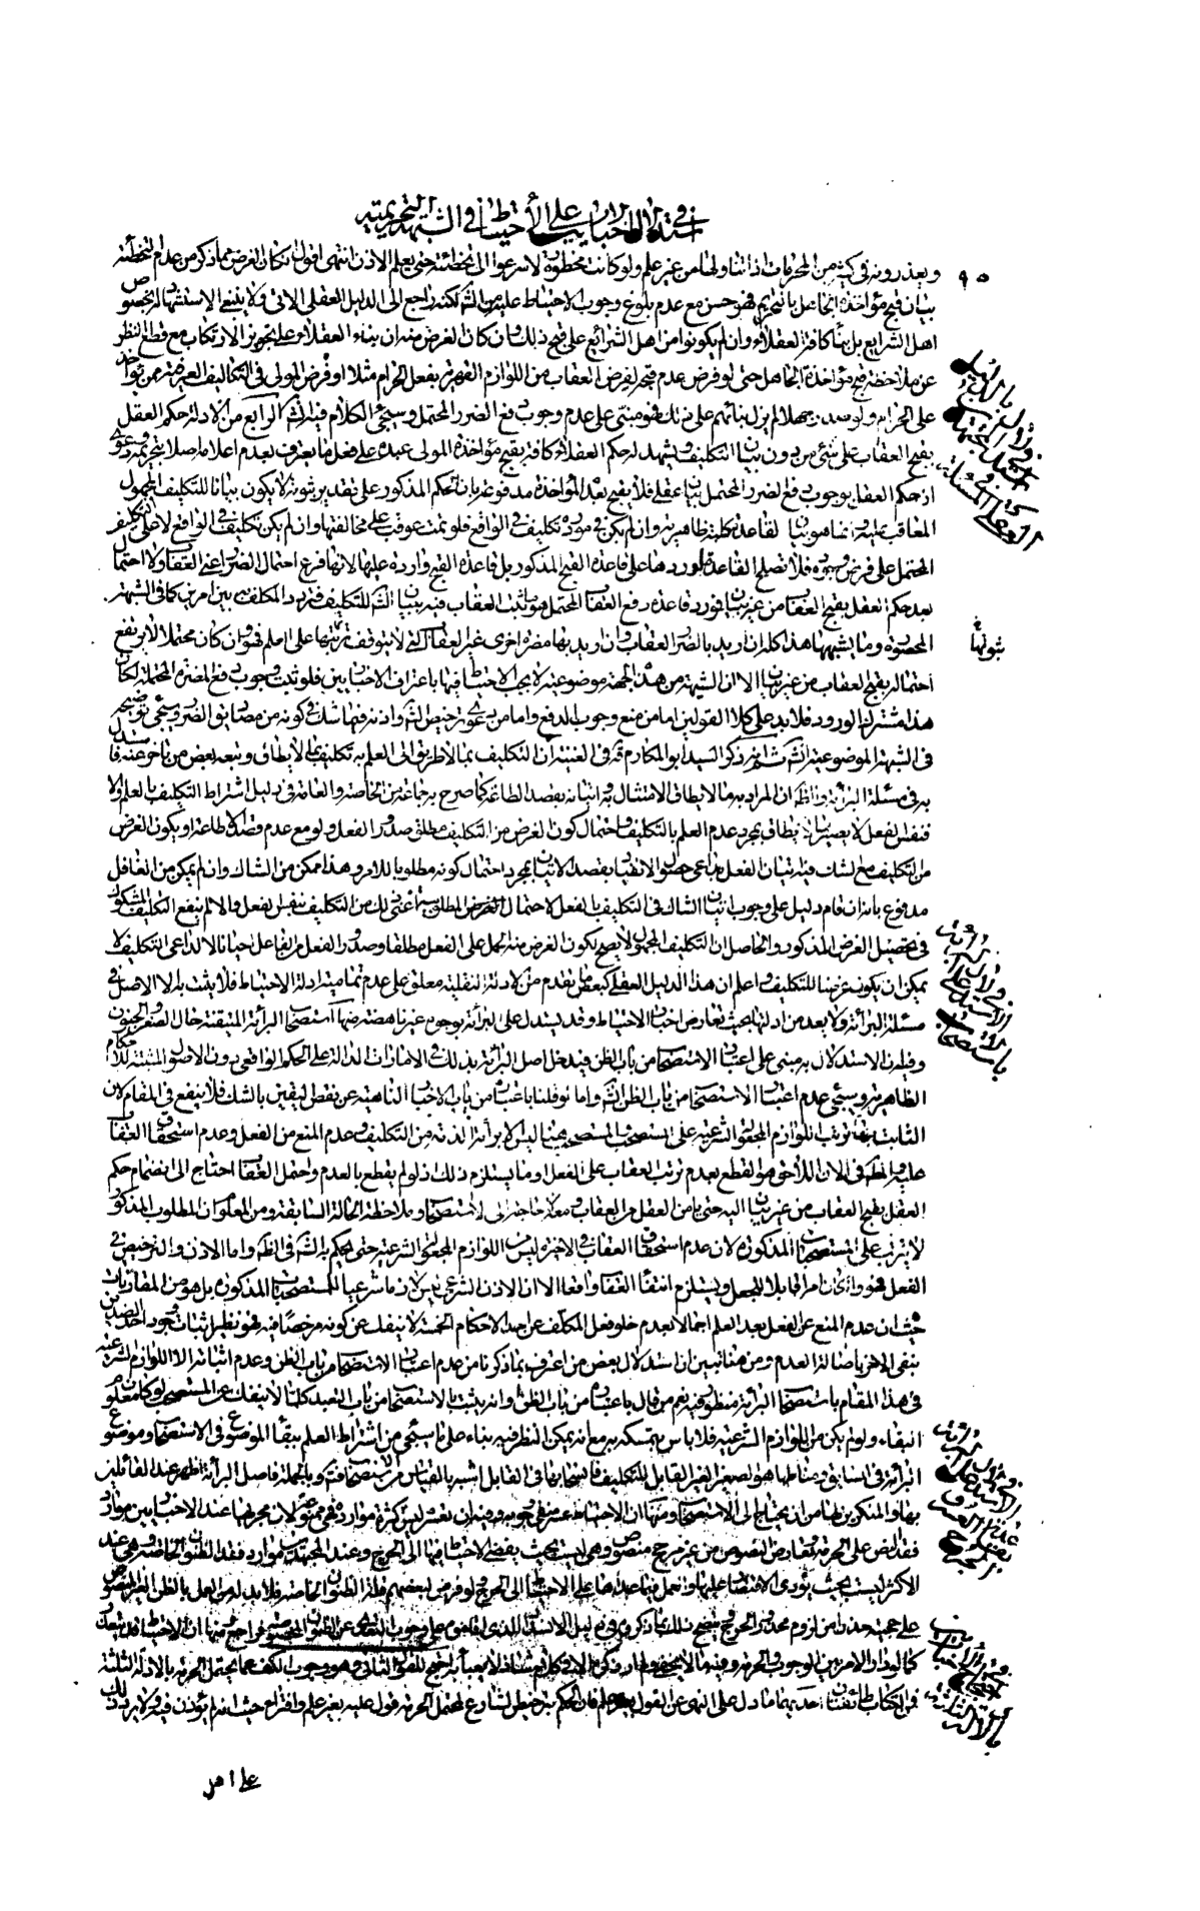 في استدلال الاخباريين على الاحتياط في الشبهة التحريمية
٩٥
ويعذرونه في كثير من المحرمات اذا تناولها من غير علم ولو كانت محظورة لاسرعوا الى تخطئته حتى يعلم الاذن انتهى اقول ان كان الغرض مما ذكر من عدم التخطئة
بيان قبح مؤاخذة الجاهل بالتحريم فهو حسن مع عدم بلوغ وجوب الاحتياط عليه من الشارع لكنه راجع الى الدليل العقلي الاتي ولا ينبغي الاستشهاد له بخصوص
اهل الشرايع بل بناء كافة العقلاء وان لم يكونوا من اهل الشرائع على قبح ذلك وان كان الغرض منه ان بناء العقلاء على تجويز الارتكاب مع قطع النظر
عن ملاحظة قبح مؤاخذة الجاهل حتى لو فرض عدم قبحه لفرض العقاب من اللوازم القهرية لفعل الحرام مثلا او فرض المولى في التكاليف العرفية ممن يؤاخذ
على الحرام ولو صدر جهلا لم يزل بنائهم على ذلك فهو مبني على عدم وجوب دفع الضرر المحتمل وسيجئ الكلام فيه انش الرابع من الادلة حكم العقل
بقبح العقاب على شئ من دون بيان التكليف ويشهد له حكم العقلاء كافة بقبح مؤاخذة المولى عبده على فعل ما يعترف بعدم اعلامه اصلا بتحريمه ودعوى
ان حكم العقل بوجوب دفع الضرر المحتمل بيان عقلي فلا يقبح بعده المؤاخذة مدفوعة بان الحكم المذكور على تقدير ثبوته لا يكون بيانا للتكليف المجهول
المعاقب عليه وانما هو بيان لقاعدة كلية ظاهرية وان لم يكن في مورده تكليف في الواقع فلو تمت عوقب على مخالفتها وان لم يكن تكليف في الواقع لا على التكليف
المحتمل على فرض وجوده فلا تصلح القاعدة لورودها على قاعدة القبح المذكورة بل قاعدة القبح واردة عليها لانها فرع احتمال الضرر اعني العقاب ولا احتمال
بعد حكم العقل بقبح العقاب من غير بيان فمورد قاعدة دفع العقاب المحتمل هو ما ثبت العقاب فيه ببيان الشارع للتكليف فتردد المكلف به بين امرين كما في الشبهة
المحصورة وما يشبهها هذا كله ان اريد بالضرر العقاب وان اريد بها مضرة اخرى غير العقاب التي لا يتوقف ترتبها على العلم فهو وان كان محتملا لا يرتفع
احتماله بقبح العقاب من غير بيان الا ان الشبهة من هذه الجهة موضوعية لا يجب الاحتياط فيها باعتراف الاخباريين فلو ثبت وجوب دفع المضرة المحتملة لكان
هذا مشترك الورود فلا بد على كلا القولين اما من منع وجوب الدفع واما من دعوى ترخيص الشارع واذنه فيما شك في كونه من مصاديق الضرر وسيجئ توضيحه
في الشبهة الموضوعية انش ثم انه ذكر السيد ابو المكارم قده في الغنية ان التكليف بما لا طريق الى العلم به تكليف بما لا يطاق وتبعه بعض من تاخر عنه فاستدل
به في مسئلة البرائة والظ ان المراد به ما لا يطاق الامتثال به واتيانه بقصد الطاعة كما صرح به جماعة من الخاصة والعامة في دليل اشتراط التكليف بالعلم والا
فنفس الفعل لا يصير مما لا يطاق بمجرد عدم العلم بالتكليف واحتمال كون الغرض من التكليف مطلق صدور الفعل ولو مع عدم قصد الاطاعة او يكون الغرض
من التكليف مع الشك فيه اتيان الفعل بداعي حصول الانقياد بقصد الاتيان بمجرد احتمال كونه مطلوبا للامر وهذا ممكن من الشاك وان لم يمكن من الغافل
مدفوع بانه ان قام دليل على وجوب اتيان الشاك في التكليف بالفعل لاحتمال المطلوبية اغنى ذلك من التكليف بنفس الفعل والا لم ينفع التكليف المشكوك
في تحصيل الغرض المذكور والحاصل ان التكليف المجهول لا يصلح لكون الغرض منه الحمل على الفعل مطلقا وصدور الفعل من الفاعل احيانا لا لداعي التكليف لا
يمكن ان يكون غرضا للتكليف واعلم ان هذا الدليل العقلي كبعض ما تقدم من الادلة النقلية معلق على عدم تمامية ادلة الاحتياط فلا يثبت به الا الاصل في
مسئلة البرائة ولا يعد من ادلتها بحيث تعارض اخبار الاحتياط وقد يستدل على البرائة بوجوه غير ناهضة منها استصحاب البرائة المتيقنة حال الصغر والجنون
وفيه ان الاستدلال به مبني على اعتبار الاستصحاب من باب الظن فيدخل اصل البرائة بذلك في الامارات الدالة على الحكم الواقعي دون الاصول المثبتة للاحكام
الظاهرية وسيجئ عدم اعتبار الاستصحاب من باب الظن انش واما لو قلنا باعتباره من باب الاخبار الناهية عن نقض اليقين بالشك فلا ينفع في المقام لان
الثابت بها ترتب اللوازم المجعولة الشرعية على المستصحب والمستصحب هنا ليس الا برائة الذمة من التكليف وعدم المنع من الفعل وعدم استحقاق العقاب
عليه والمط في الان اللاحق هو القطع بعدم ترتب العقاب على الفعل وما يستلزم ذلك اذ لو لم يقطع بالعدم واحتمل العقاب احتاج الى انضمام حكم
العقل بقبح العقاب من غير بيان اليه حتى يامن العقل من العقاب ومعه لا حاجة الى الاستصحاب وملاحظة الحالة السابقة ومن المعلوم ان المطلوب المذكور
لا يترتب على المستصحبات المذكورة لان عدم استحقاق العقاب في الاخرة ليس من اللوازم المجعولة الشرعية حتى يحكم به الشارع في الظ واما الاذن والترخيص في
الفعل فهو وان كان امرا قابلا للجعل ويستلزم انتفاء العقاب واقعا الا ان الاذن الشرعي ليس لازما شرعيا للمستصحبات المذكورة بل هو من المقارنات
حيث ان عدم المنع عن الفعل بعد العلم اجمالا بعدم خلو فعل المكلف عن احد الاحكام الخمسة لا ينفك عن كونه مرخصا فيه فهو نظير اثبات وجود احد الضدين
بنفي الاخر باصالة العدم ومن هنا تبين ان استدلال بعض من اعترف بما ذكرنا من عدم اعتبار الاستصحاب من باب الظن وعدم اثباته الا اللوازم الشرعية
في هذا المقام باستصحاب البرائة منظور فيه نعم من قال باعتباره من باب الظن وانه يثبت بالاستصحاب من باب التعبد كلما لا ينفك عن المستصحب لو كان معلوم
البقاء ولو لم يكن من اللوازم الشرعية فلا باس بتمسكه به مع انه يمكن النظر فيه بناء على ما سيجئ من اشتراط العلم ببقاء الموضوع في الاستصحاب وموضوع
البرائة في السابق ومناطها هو الصغير الغير القابل للتكليف فانسحابها في القابل اشبه بالقياس من الاستصحاب فت وبالجملة فاصل البرائة اظهر عند القائلين
بها والمنكرين لها من ان يحتاج الى الاستصحاب ومنها ان الاحتياط عسر منفي وجوبه وفيه ان تعسره ليس الا من حيث كثرة موارده وهي ممنوعة لان مجراها عند الاخباريين موارد
فقد النص على الحرمة وتعارض النصوص من غير مرجح منصوص وهي ليست بحيث يفضي الاحتياط فيها الى الحرج وعند المجتهدين موارد فقد الظنون الخاصة وهي عند
الاكثر ليست بحيث يؤدي الاقتصار عليها والعمل فيما عداها على الاحتياط الى الحرج ولو فرض لبعضهم قلة الظنون الخاصة فلا بد له من العمل بالظن الغير المنصوص
على حجيته حذرا من لزوم محذور الحرج ويتضح ذلك بما ذكروه في دليل الانسداد الذي اقاموه على وجوب التعدي عن الظنون المخصوصة فراجع ومنها ان الاحتياط قد يتعذر
كما لو دار الامر بين الوجوب والحرمة وفيه ما لا يخفى ولم ار ذكره الا في كلام شاذ لا يعبأ به احتج للقول الثاني وهو وجوب الكف عما يحتمل الحرمة بالادلة الثلثة
فمن الكتاب طائفتان احديهما ما دل على النهي عن القول بغير علم فان الحكم بترخيص الشارع لمحتمل الحرمة قول عليه بغير علم وافتراء حيث انه لم يؤذن فيه ولا يرد ذلك
على اهل
ثبوتها
في الاستدلال على البرائة باستصحابها